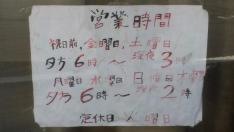 営業時間
祝日前,金曜日,土曜日
夕方6時～深夜3時
月曜日 水曜日 日曜日 木曜
夕方6時～深夜2時
定休日 火曜日